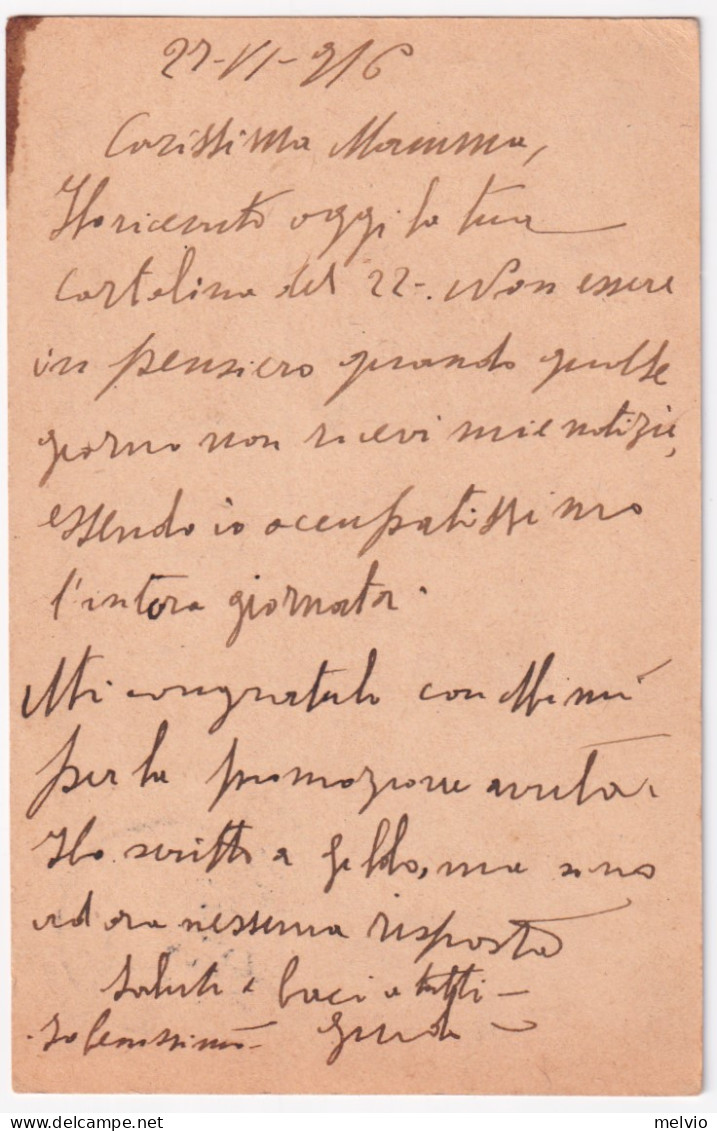 27-VI-916
Carissima Mamma,
Ho ricevuto oggi la tua
cartolina del 22-. Non essere
in pensiero quando qualche
giorno non ricevi mie notizie,
essendo io occupatissimo
l'intera giornata.
Mi congratulo con Mimì
per la promozione avuta.
Ho scritto a Gildo, ma sino
ad ora nessuna risposta
Saluti e baci a tutti -
Io benissimo - Guido
melvio